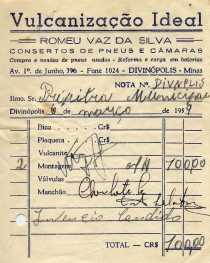 Vulcanização Ideal
ROMEU VAZ DA SILVA
CONSERTOS DE PNEUS E CÂMARAS
Compra e vendas de pneus usados - Reforma e carga em baterias
Av. 1º de Junho, 396 - Fone 1024 - DIVINÓPOLIS - Minas
NOTA Nº
Ilmo. Sr. Municipal
Divinópolis, de março de 195
Bico CR$
Plaqueta
Vulcanite
2 Montagens 700,00
Válvulas
Manchão
Candido
TOTAL — CR$ 700,00